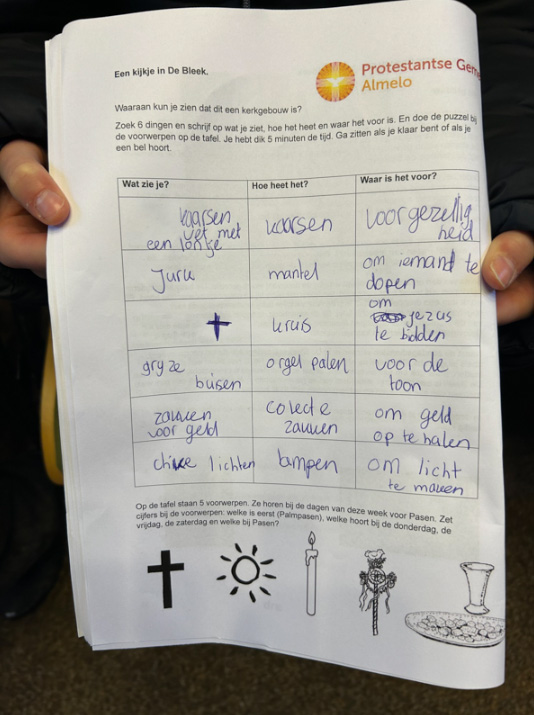 Een kijkje in De Bleek.
Protestantse Gem
Almelo
Waaraan kun je zien dat dit een kerkgebouw is?
Zoek 6 dingen en schrijf op wat je ziet, hoe het heet en waar het voor is. En doe de puzzel bij
de voorwerpen op de tafel. Je hebt dik 5 minuten de tijd. Ga zitten als je klaar bent of als je
een bel hoort.
Wat zie je?
Hoe heet het?
Waar is het voor?
kaarsen
vet met
een lontje
kaarsen
voor gezellig
heid
Juru
mantel
om iemand te
dopen
kruis
om
jezus
te bidden
gryze
buisen
orgel palen
voor de
toon
zakken
voor geld
colecte
zakken
om geld
op te halen
lichten
lampen
om licht
te maken
Op de tafel staan 5 voorwerpen. Ze horen bij de dagen van deze week voor Pasen. Zet
cijfers bij de voorwerpen: welke is eerst (Palmpasen), welke hoort bij de donderdag, de
vrijdag, de zaterdag en welke bij Pasen?